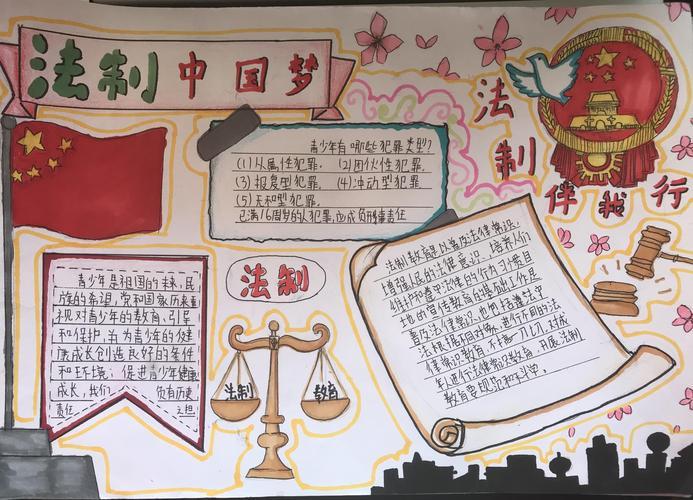 法制中国梦
法制
伴我行
青少年有哪些犯罪类型?
(1)从属性犯罪. (2)团伙性犯罪.
(3)报复型犯罪. (4)冲动型犯罪
(5)无知型犯罪.
已满16周岁的人犯罪,应成负刑事责任
青少年是祖国的未来,民
族的希望,党和国家历来重
视对青少年的教育、引导
和保护,并为青少年的健
康成长创造良好的条件
和环境;促进青少年健康
成长,我们 负有历史
责任
法制
法制
教育
法制教育是以普及法律常识,
增强人民的法律意识、培养人们
维护和遵守法律的行为习惯目
地的宣传教育的基础工作是
普及法律常识,也把
法规 根据不同对象,进行不同的法
律常识教育,
年进行法律常识教育,开展法制
教育要规范和科学。